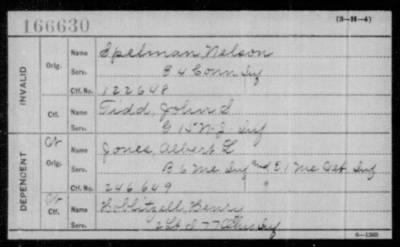 166630
(3-H-4)
INVALID
Orig.
Name Spelman, Nelson
Serv. G 4 Conn Inf
Ctf. No. 122648
Ctf.
Name Tidd, John S
Serv. G 15 N.J. Inf
DEPENDENT
Ctf Orig.
Name Jones, Albert L
Serv. B 6 Me Inf and E 1 Me Vet Inf
Ctf. No. 246649
Ctf
Name Boblitzell, Henry
Serv. 77 Inf